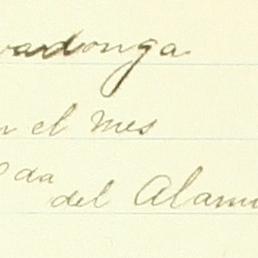 vadonga
n el mes
da
del Alam